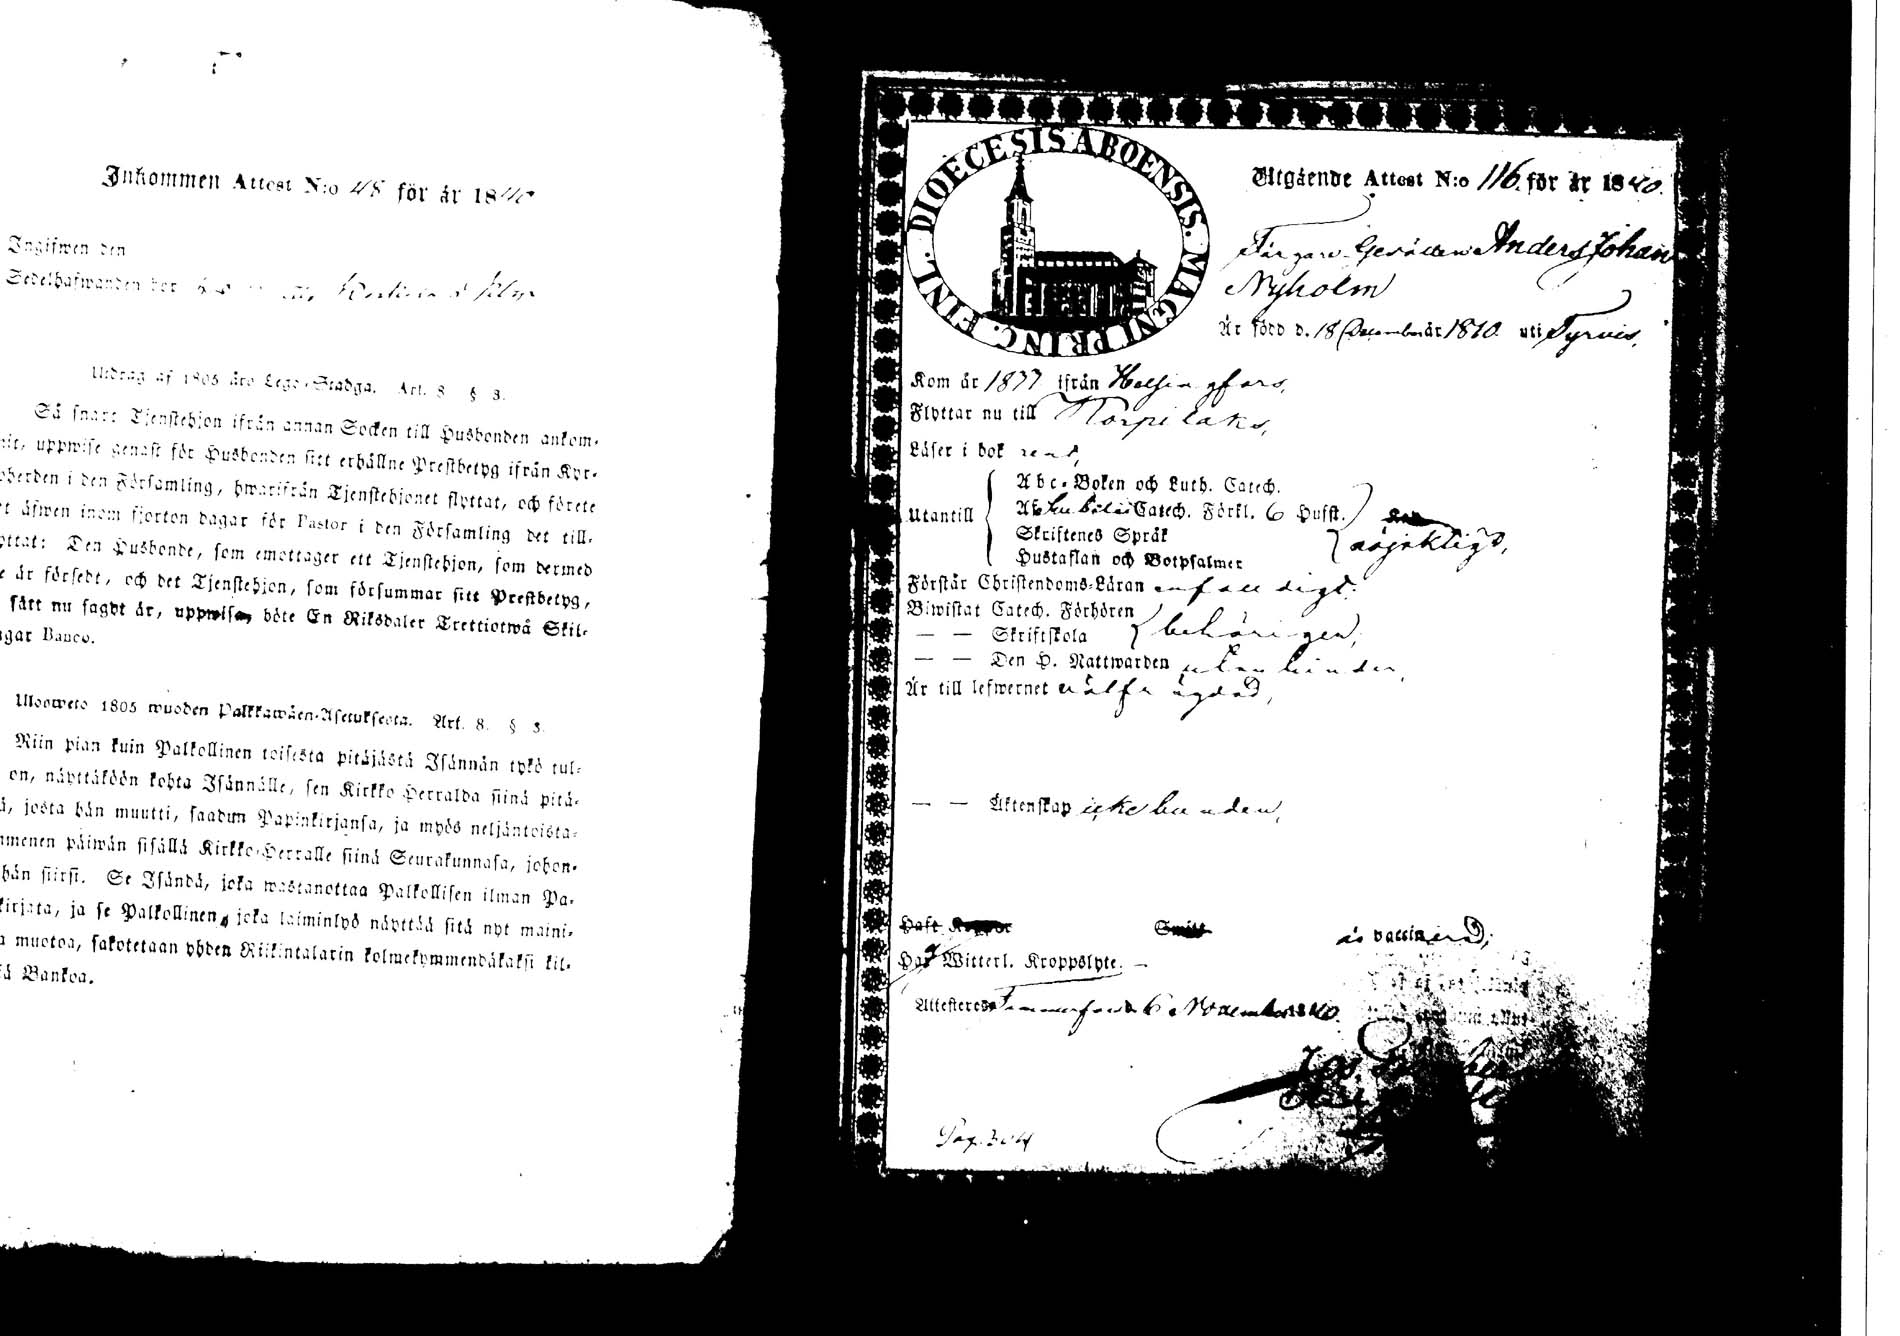 Inkommen Attest N:o 48 för år 1840
Ingifwen den
Sedelhafwanden bor
Utdrag af 1805 års Lego-Stadga. Art. 8 § 3.
Så snart Tjenstehjon ifrån annan Socken till Husbonden ankom-
mit, uppwise genast för Husbonden sitt erhållne Prestbetyg ifrån Kyr-
oherden i den Församling, hwarifrån Tjenstehjonet flyttat, och förete
t äfwen inom fjorton dagar för Pastor i den Församling det till-
yttat: Den Husbonde, som emottager ett Tjenstehjon, som dermed
e är försedt, och det Tjenstehjon, som försummar sitt Prestbetyg,
sätt nu sagdt är, uppwisa, böte En Riksdaler Trettiotwå Skil-
ngar Banco.
Ulosweto 1805 wuoden Palkkawäen-Asetuksesta. Art. 8. § 3.
Niin pian kuin Palkollinen toisesta pitäjästä Isännän tykö tul-
on, näyttäköön kohta Isännälle, sen Kirkko-Herralda siinä pitä-
ä, josta hän muutti, saadun Papinkirjansa, ja myös neljäntoista-
mmenen päiwän sisällä Kirkko-Herralle siinä Seurakunnasa, johon-
hän siirsi. Se Isändä, joka wastanottaa Palkollisen ilman Pa-
kirjata, ja se Palkollinen, joka laiminlyö näyttää sitä nyt maini-
a muotoa, sakotetaan yhden Riikintalarin kolmekymmendäkaksi kil-
iä Bankoa.
DIOECESIS ABOENSIS. MAGNI PRINC. FINL.
Utgående Attest N:o 116. för år 1840.
Färgare Gesällen Anders Johan
Nyholm
Är född d. 18 December år 1810. uti Tyrvis,
Kom år 1837 ifrån Helsingfors,
Flyttar nu till Norpilaks,
Läser i bok rent,
Utantill
Abc-Boken och Luth. Catech.
Catech. Förkl. 6 Husst.
Skriftenes Språk
Hustaflan och Botpsalmer
nöjaktigt,
Förstår Christendoms-Läran enfalldigt.
Biwistat Catech. Förhören
— — Skriftskola
behörigen,
— — Den H. Nattwarden utan hinder,
Är till lefwernet välfrägdad,
— — Äktenskap icke bunden,
Haft Koppor Smitt är vaccinerad,
Har Witterl. Kroppslyte. —
Attesteres Tammerfors d. 6 November 1840.
Pag. 304